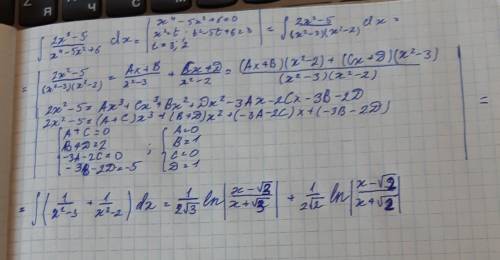 ∫ (2x²-5)/(x⁴-5x²+6) dx = | x⁴-5x²+6=0
x²=t, t²-5t+6=0
t=3; 2 | = ∫ (2x²-5)/((x²-3)(x²-2)) dx =
= | (2x²-5)/((x²-3)(x²-2)) = (Ax+B)/(x²-3) + (Cx+D)/(x²-2) = ((Ax+B)(x²-2)+(Cx+D)(x²-3))/((x²-3)(x²-2))
2x²-5=Ax³+Cx³+Bx²+Dx²-3Ax-2Cx-3B-2D
2x²-5=(A+C)x³+(B+D)x²+(-3A-2C)x+(-3B-2D) | =
{ A+C=0 ; { A=0
B+D=2 B=1
-3A-2C=0 C=0
-3B-2D=-5 D=1
= ∫ (1/(x²-3) + 1/(x²-2)) dx = 1/(2√3) ln |(x-√3)/(x+√3)| + 1/(2√2) ln |(x-√2)/(x+√2)|